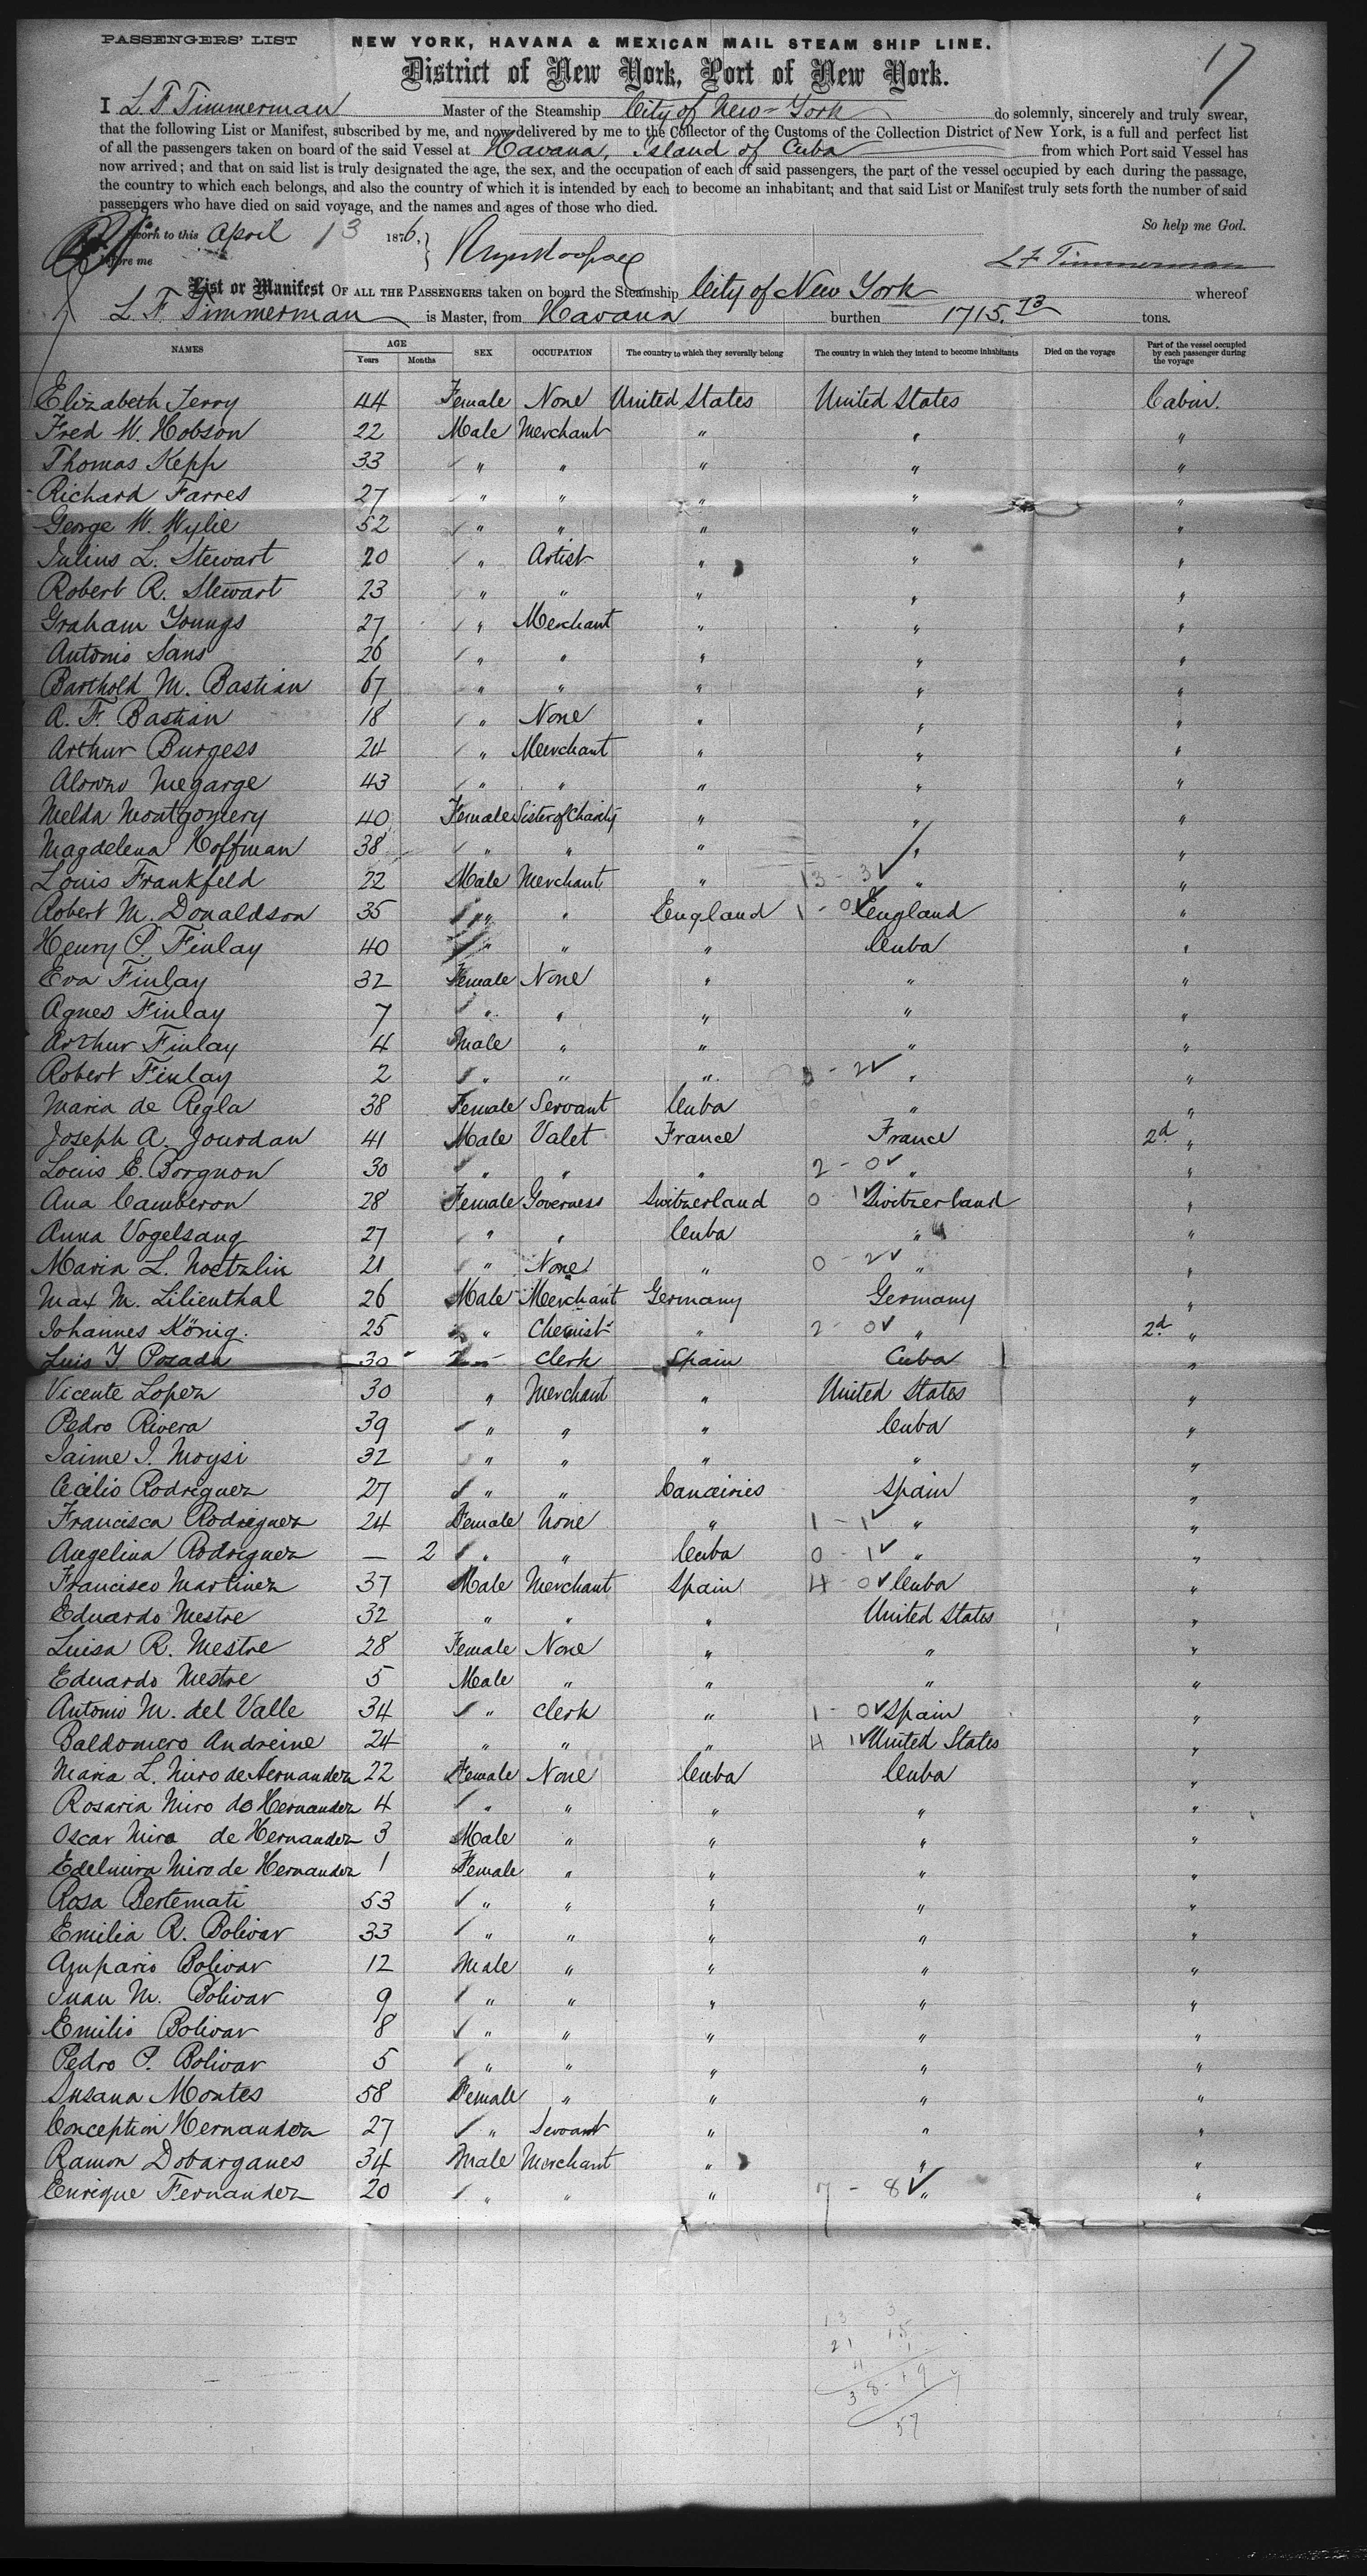 PASSENGERS' LIST
NEW YORK, HAVANA & MEXICAN MAIL STEAM SHIP LINE.
17
District of New York, Port of New York.
I L F Timmerman Master of the Steamship City of New-York do solemnly, sincerely and truly swear,
that the following List or Manifest, subscribed by me, and now delivered by me to the Collector of the Customs of the Collection District of New York, is a full and perfect list
of all the passengers taken on board of the said Vessel at Havana, Island of Cuba from which Port said Vessel has
now arrived; and that on said list is truly designated the age, the sex, and the occupation of each of said passengers, the part of the vessel occupied by each during the passage,
the country to which each belongs, and also the country of which it is intended by each to become an inhabitant; and that said List or Manifest truly sets forth the number of said
passengers who have died on said voyage, and the names and ages of those who died.
So help me God.
Sworn to this April 13 1876,
before me
L F Timmerman
List or Manifest OF ALL THE PASSENGERS taken on board the Steamship City of New York whereof
L F Timmerman is Master, from Havana burthen 1715.73 tons.
NAMES AGE Years Months SEX OCCUPATION The country to which they severally belong The country in which they intend to become inhabitants Died on the voyage Part of the vessel occupied by each passenger during the voyage
Elizabeth Terry 44 Female None United States United States Cabin.
Fred W. Hobson 22 Male Merchant " " "
Thomas Kepp 33 " " " " "
Richard Farres 27 " " " " "
George W. Wylie 52 " " " " "
Julius L. Stewart 20 " Artist " " "
Robert R. Stewart 23 " " " " "
Graham Youngs 27 " Merchant " " "
Antonio Sans 26 " " " " "
Barthold M. Bastian 67 " " " " "
A. F. Bastian 18 " None " " "
Arthur Burgess 24 " Merchant " " "
Alonzo Megarge 43 " " " " "
Melda Montgomery 40 Female Sister of Charity " " "
Magdelena Hoffman 38 " " " " "
Louis Frankfeld 22 Male Merchant " 13 - 3 " "
Robert M. Donaldson 35 " " England 1 - 0 England "
Henry P. Finlay 40 " " " Cuba "
Eva Finlay 32 Female None " " "
Agnes Finlay 7 " " " " "
Arthur Finlay 4 Male " " " "
Robert Finlay 2 " " " 3 - 2 " "
Maria de Regla 38 Female Servant Cuba " "
Joseph A. Jourdan 41 Male Valet France France 2d "
Louis E. Borgnon 30 " " " 2 - 0 " "
Ana Camberon 28 Female Governess Switzerland 0 - 1 Switzerland "
Anna Vogelsang 27 " " Cuba " "
Maria L. Noetzlin 21 " None " 0 - 2 " "
Max M. Lilienthal 26 Male Merchant Germany Germany "
Johannes König. 25 " Chemist " 2 - 0 " 2d "
Luis Y. Posada 30 " Clerk Spain Cuba "
Vicente Lopez 30 " Merchant " United States "
Pedro Rivera 39 " " " Cuba "
Jaime J. Moysi 32 " " " " "
Cecilio Rodriguez 27 " " Canairies Spain "
Francisca Rodriguez 24 Female None " 1 - 1 " "
Angelina Rodriguez — 2 " " Cuba 0 - 1 " "
Francisco Martinez 37 Male Merchant Spain 4 - 0 Cuba "
Eduardo Mestre 32 " " " United States "
Luisa R. Mestre 28 Female None " " "
Eduardo Mestre 5 Male " " " "
Antonio M. del Valle 34 " Clerk " 1 - 0 Spain "
Baldomero Andreine 24 " " " 4 1 United States "
Maria L. Miro de Hernandez 22 Female None Cuba Cuba "
Rosaria Miro de Hernandez 4 " " " " "
Oscar Miro de Hernandez 3 Male " " " "
Edelmira Miro de Hernandez 1 Female " " " "
Rosa Bertemati 53 " " " " "
Emilia R. Bolivar 33 " " " " "
Ampario Bolivar 12 Male " " " "
Juan M. Bolivar 9 " " " " "
Emilio Bolivar 8 " " " " "
Pedro P. Bolivar 5 " " " " "
Susana Montes 58 Female " " " "
Conception Hernandez 27 " Servant " " "
Ramon Dobarganes 34 Male Merchant " " "
Enrique Fernandez 20 " " " 7 - 8 " "
13 3
21 15
4 1
38 - 19
57